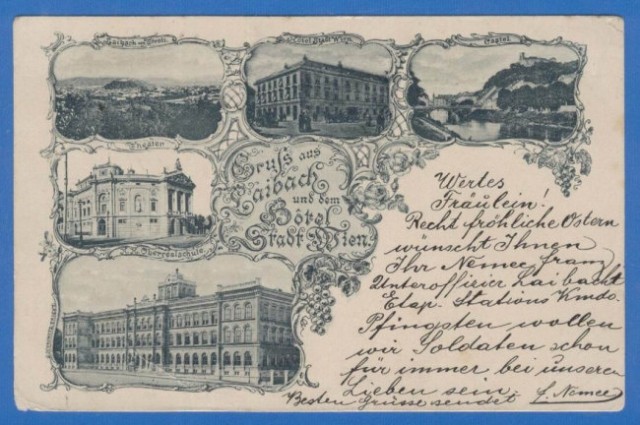 Hotel Stadt Wien
Castel
Theater
K. K. Oberrealschule
Gruss aus
Laibach
und dem
Hôtel
Stadt Wien.
Wertes
Fräulein!
Recht fröhliche Ostern
wünscht Ihnen
Ihr Nemec Franz
Unteroffizier Laibach
Etap. Stations Kmdo.
Pfingsten wollen
wir Soldaten schon
für immer bei unseren
Lieben sein.
Besten Grüsse sendet F. Nemec